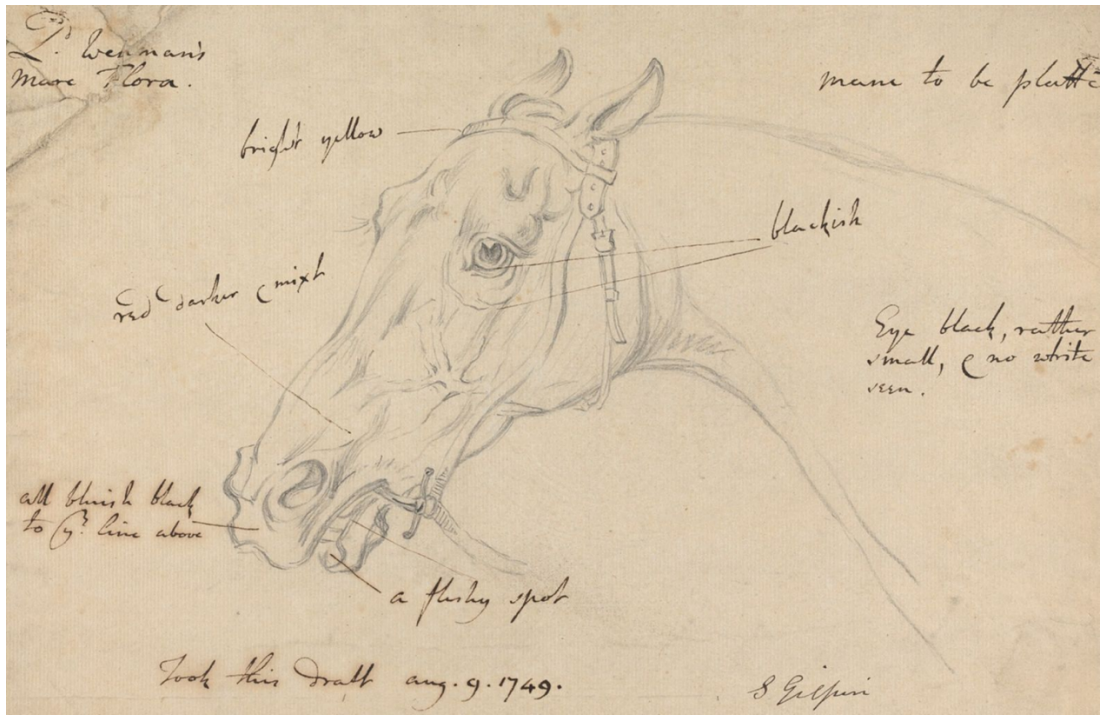 Ld. Wenman's
Mare Flora.
mane to be platte
bright yellow
blackish
red darker & mixt
Eye black, rather
small, & no white
seen.
all bluish black
to ye. line above
a fleshy spot
Took this Draft aug. 9. 1749.
S Gilpin